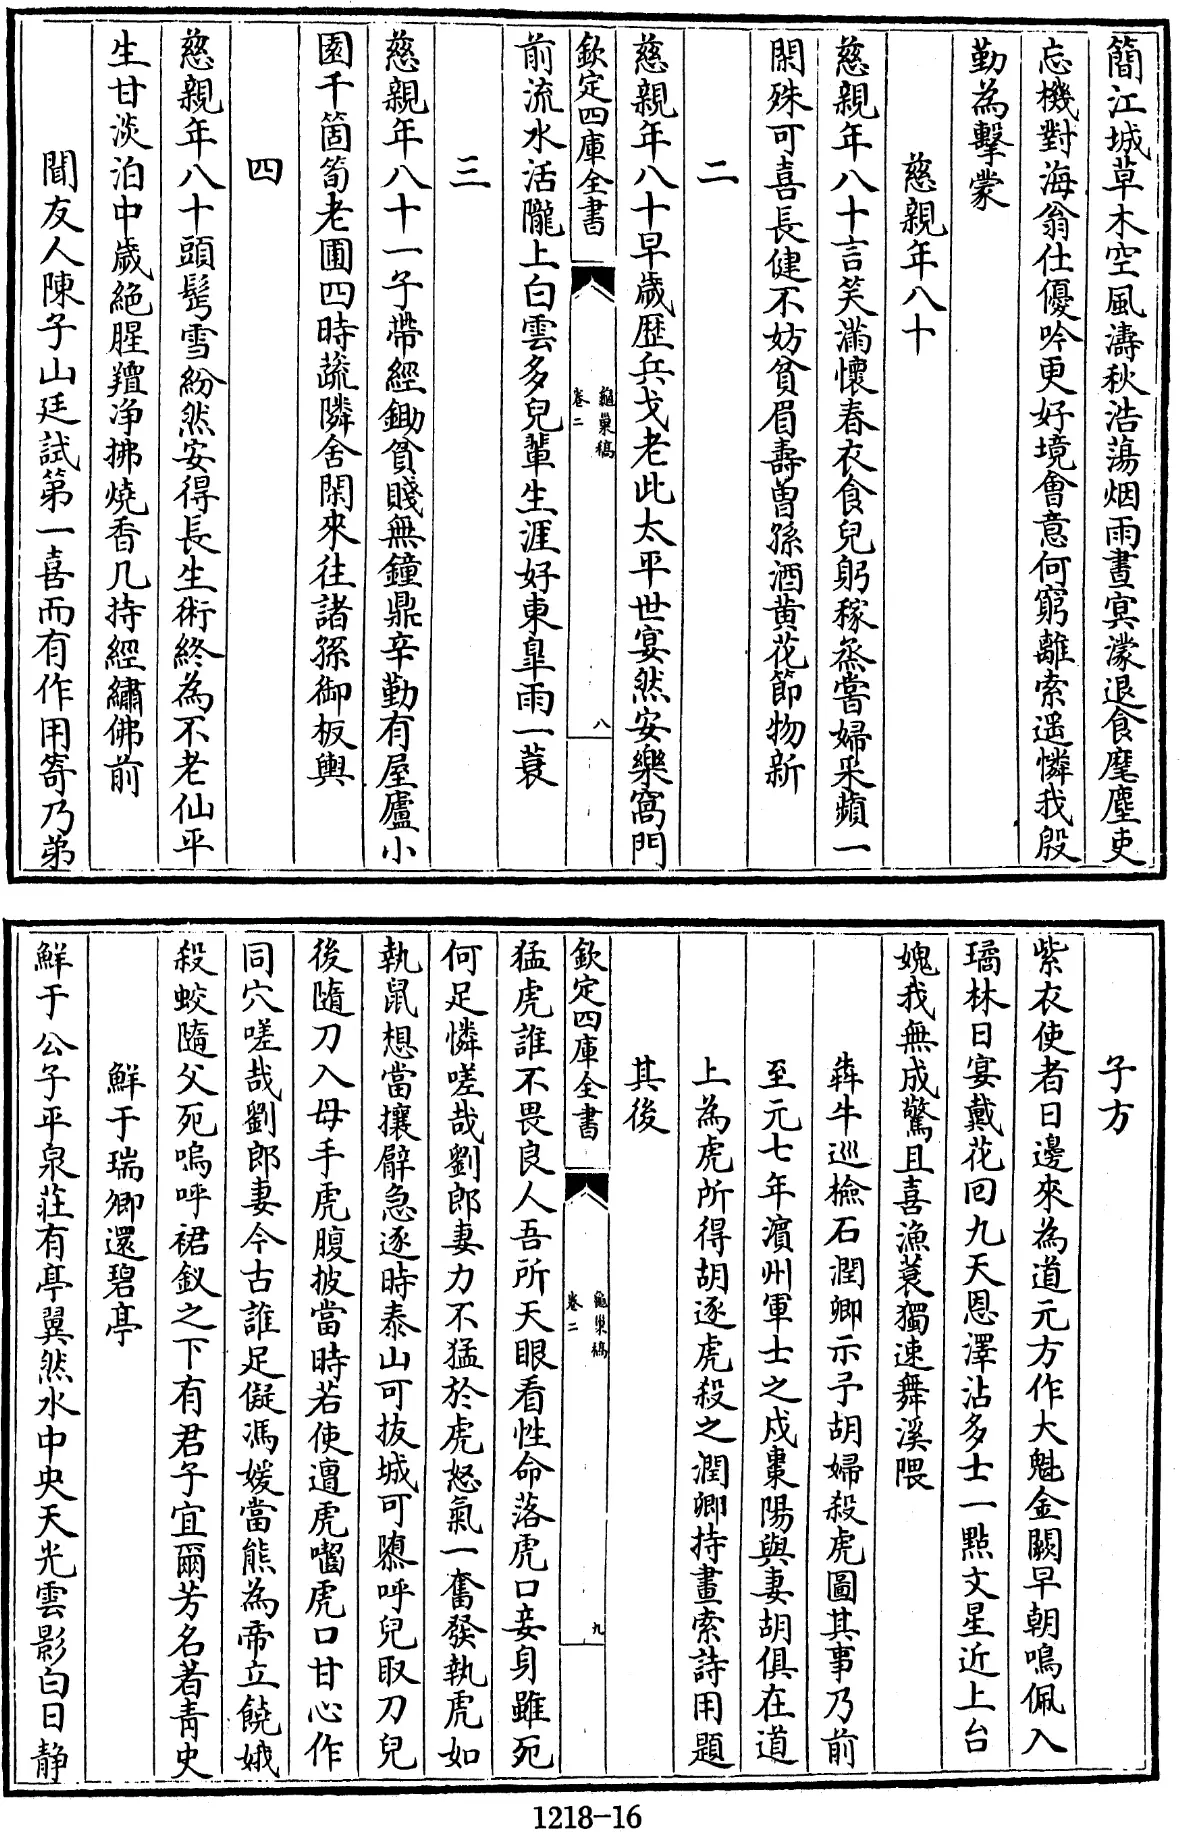 簡江城草木空風濤秋浩蕩烟雨晝冥濛退食麾塵吏
忘機對海翁仕優吟更好境會意何窮離索遥憐我殷
勤為擊蒙
慈親年八十
慈親年八十言笑滿懷春衣食兒躬稼烝嘗婦采蘋一
閑殊可喜長健不妨貧眉壽曾孫酒黄花節物新
二
慈親年八十早歲歴兵戈老此太平世宴然安樂窩門
欽定四庫全書
龜巢稿
卷二
八
前流水活隴上白雲多兒輩生涯好東皐雨一蓑
三
慈親年八十一子帶經鋤貧賤無鐘鼎辛勤有屋廬小
園千箇筍老圃四時蔬隣舍閑來往諸孫御板輿
四
慈親年八十頭髩雪紛然安得長生術終為不老仙平
生甘淡泊中歲絶腥羶净拂燒香几持經繡佛前
聞友人陳子山廷試第一喜而有作用寄乃弟
子方
紫衣使者日邊來為道元方作大魁金闕早朝鳴佩入
璚林日宴戴花回九天恩澤沾多士一點文星近上台
媿我無成驚且喜漁蓑獨速舞溪隈
犇牛巡檢石潤卿示予胡婦殺虎圖其事乃前
至元七年濵州軍士之戍棗陽與妻胡俱在道
上為虎所得胡逐虎殺之潤卿持畫索詩用題
其後
欽定四庫全書
龜巢稿
卷二
九
猛虎誰不畏良人吾所天眼看性命落虎口妾身雖死
何足憐嗟哉劉郎妻力不猛於虎怒氣一奮發執虎如
執鼠想當攘臂急逐時泰山可拔城可隳呼兒取刀兒
後隨刀入母手虎腹披當時若使遭虎囓虎口甘心作
同穴嗟哉劉郎妻今古誰足儗馮媛當熊為帝立饒娥
殺蛟隨父死嗚呼裙釵之下有君子宜爾芳名著青史
鮮于瑞卿還碧亭
鮮于公子平泉莊有亭翼然水中央天光雲影白日静
1218-16